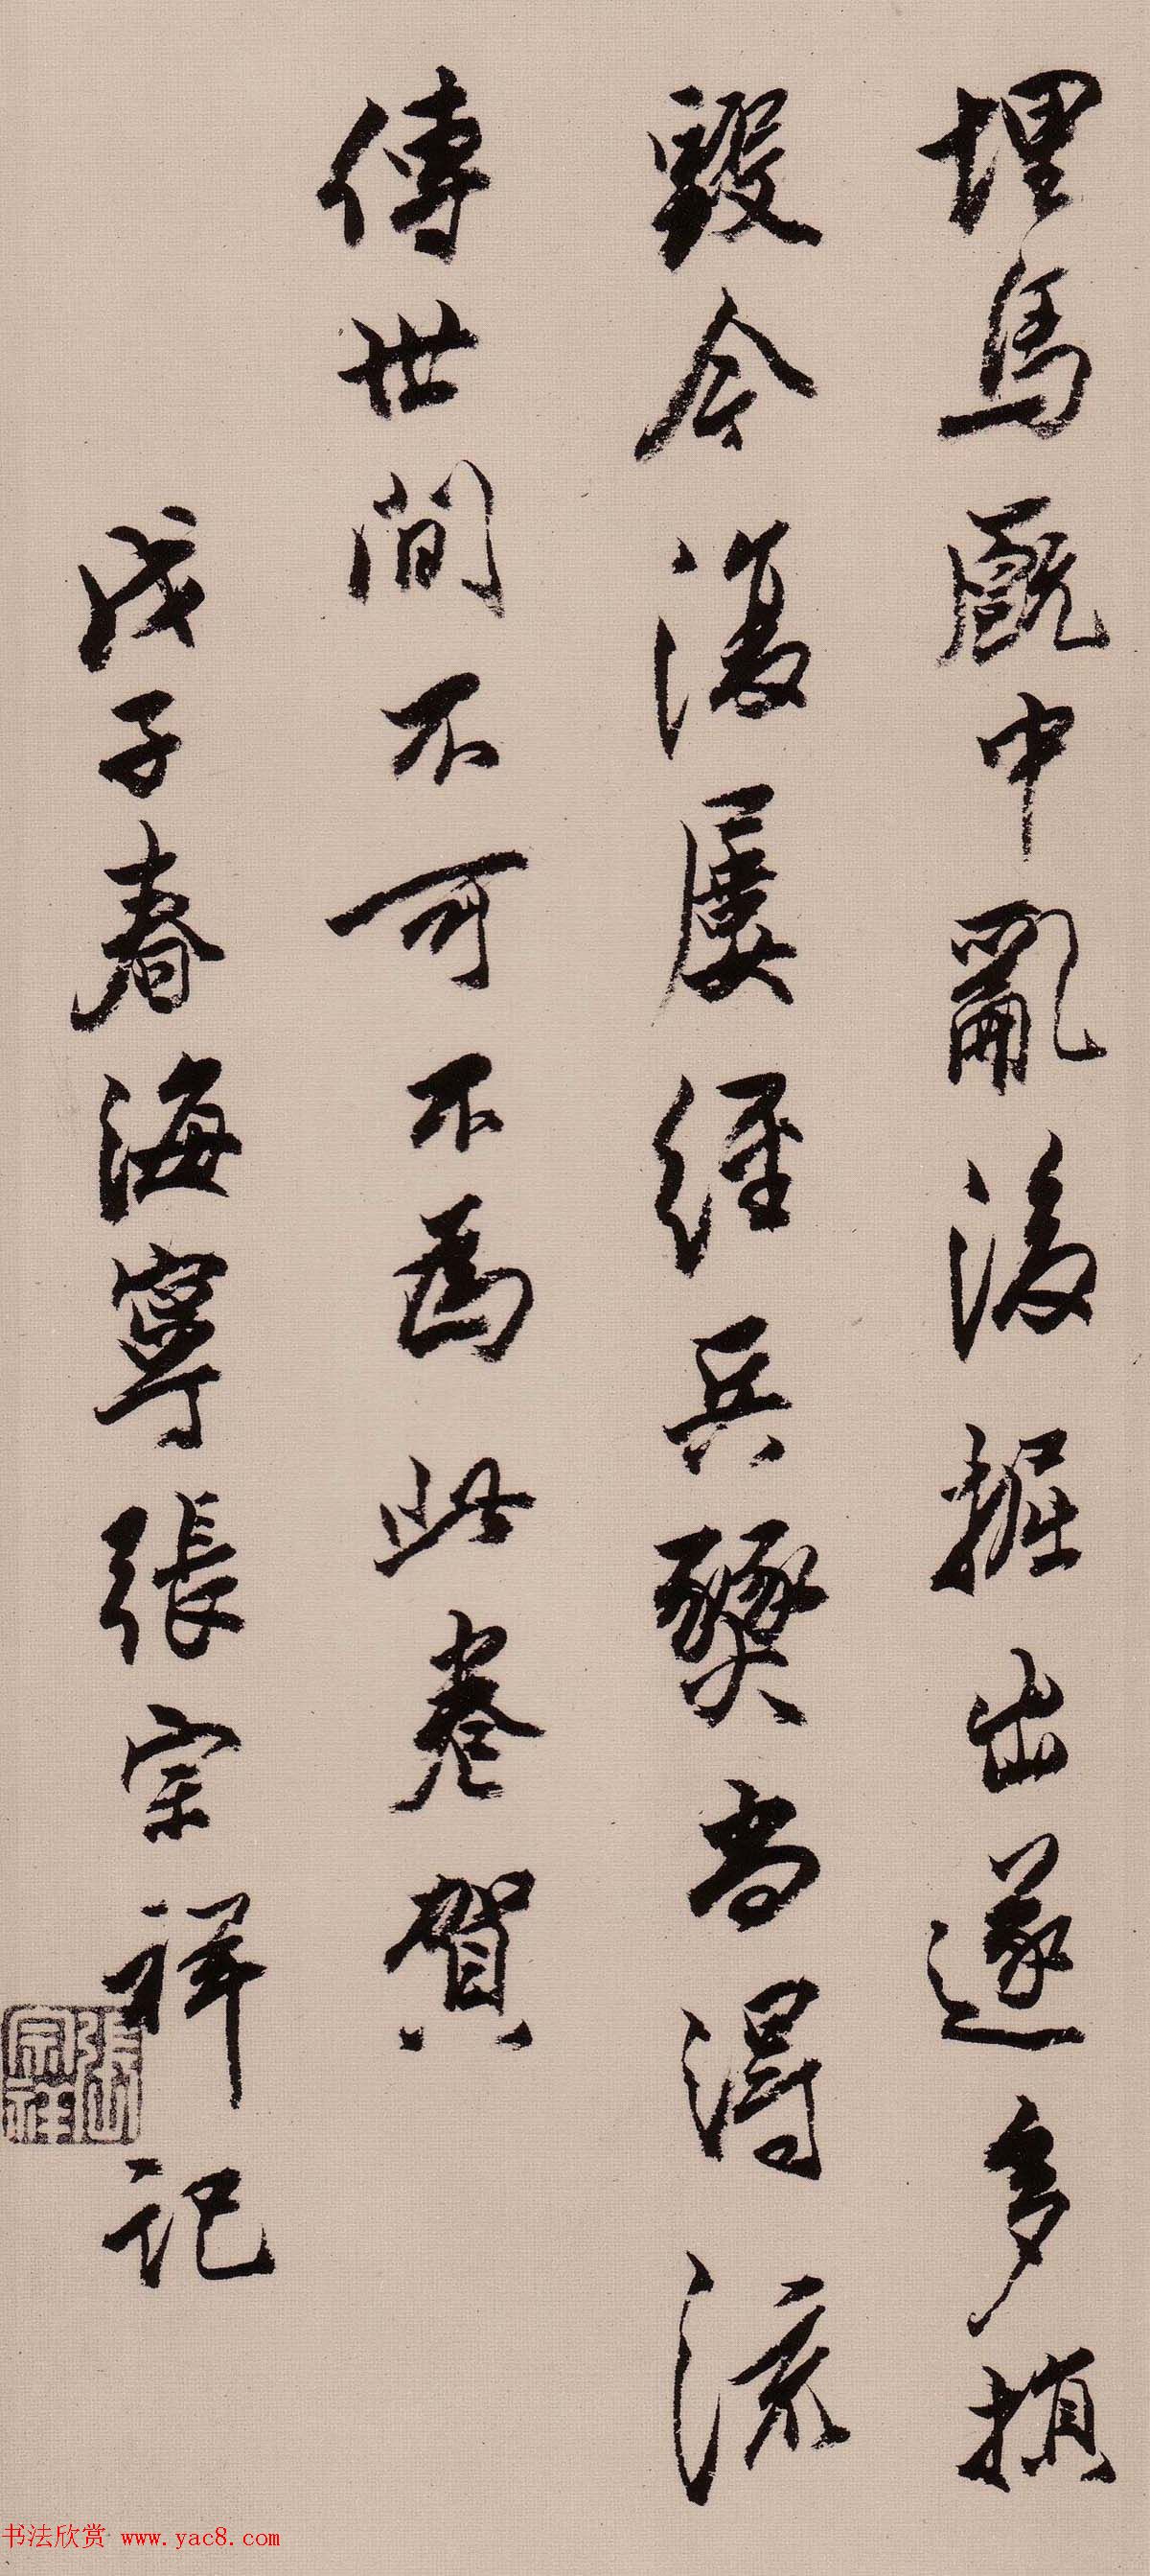 埋馬厩中亂後掘出遂多損
毀今復屢經兵燹尚得流
傳世間不可不為此卷賀
戊子春海寧張宗祥記
張宗祥
书法欣赏 www.yac8.com